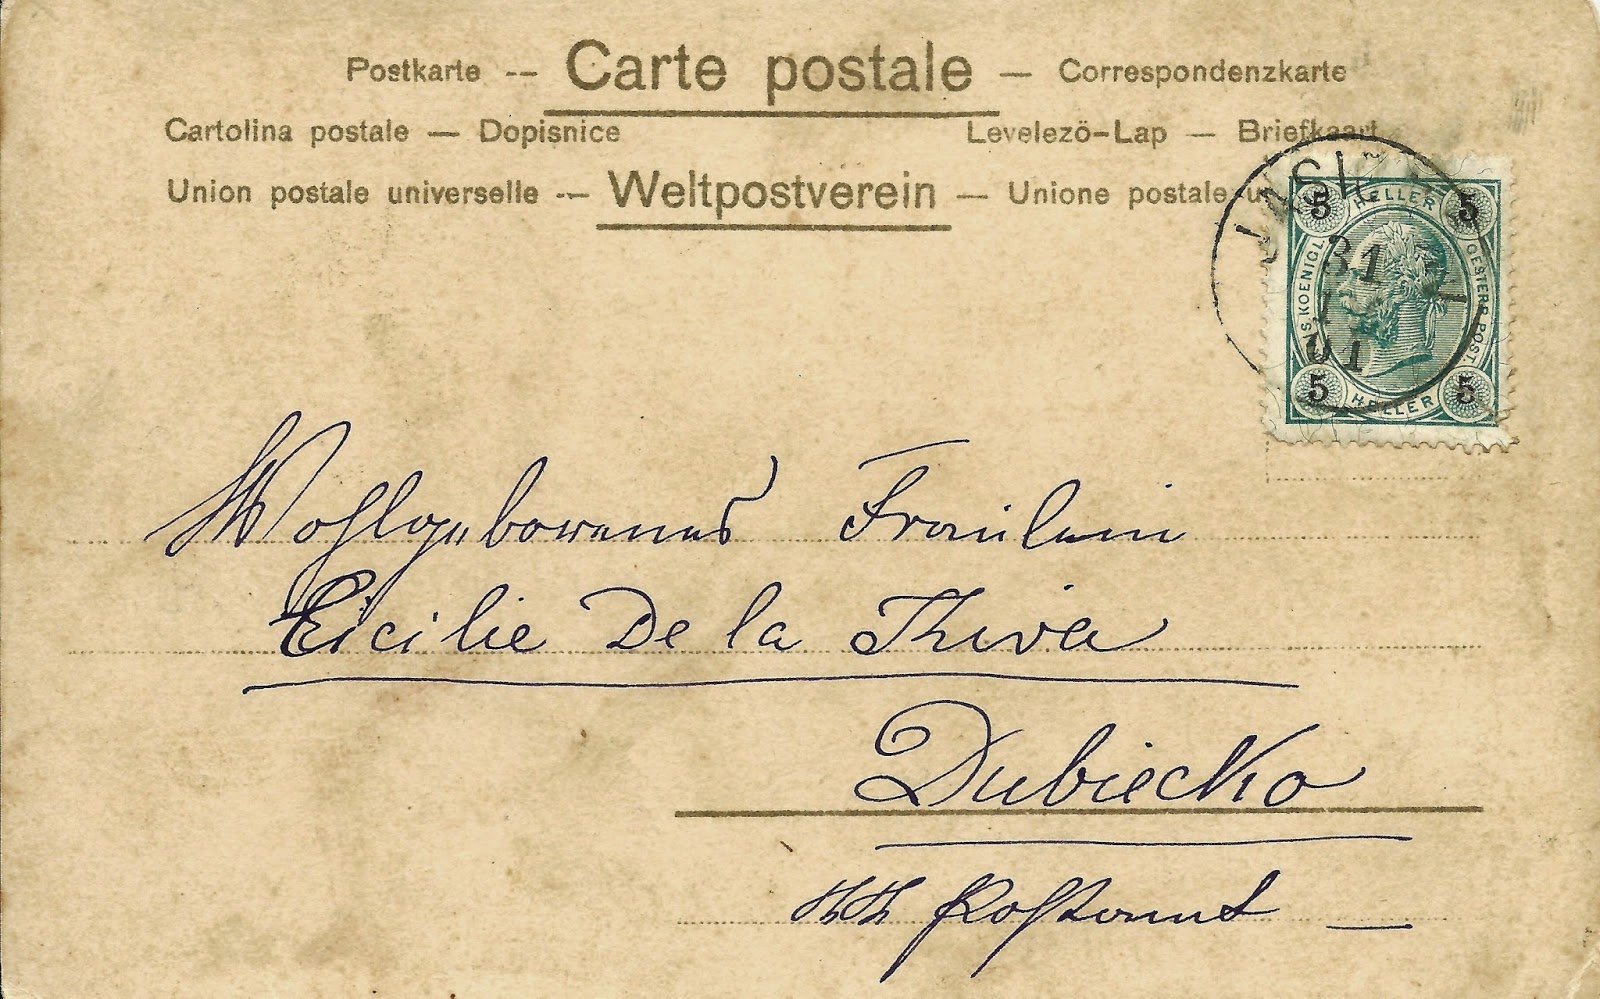 Postkarte -- Carte postale — Correspondenzkarte
Cartolina postale — Dopisnice Levelező-Lap — Briefkaart
Union postale universelle -- Weltpostverein — Unione postale u
5 HELLER 5
S. KOENIGL. OESTERR. POST.
5 HELLER 5
31
1
01
Wohlgeborenes Fräulein
Cicilie De la
Dubiecko
Postamt